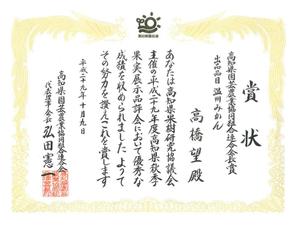 賞状
高知県園芸農業協同組合連合会会長賞
出品品目 温州みかん
高橋望 殿
あなたは高知県果樹研究協議会
主催の平成二十九年度高知県秋季
果実展示品評会において優秀な
成績を収められました よって
その努力を讃えこれを賞します
平成二十九年十月九日
高知県園芸農業協同組合連合会
代表理事会長 弘田憲一